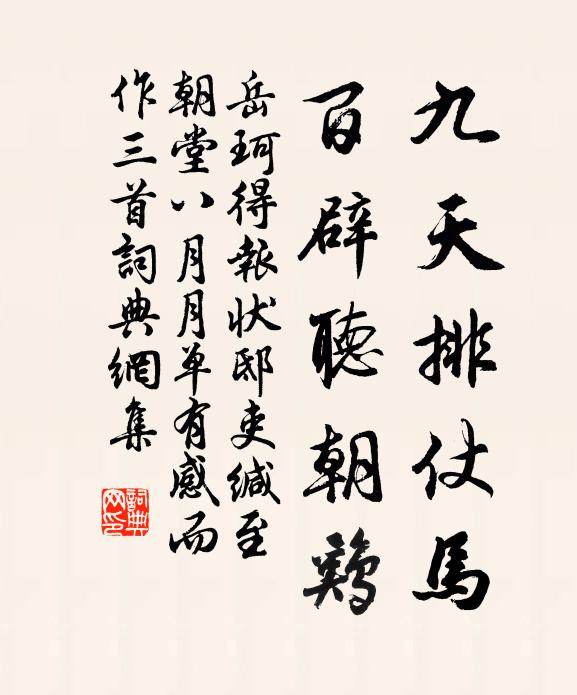 九天排仗馬
百辟聽朝鷄
岳珂得報狀邸吏緘至
朝堂八月月单有感而
作三首詞典網集
詞典
网印